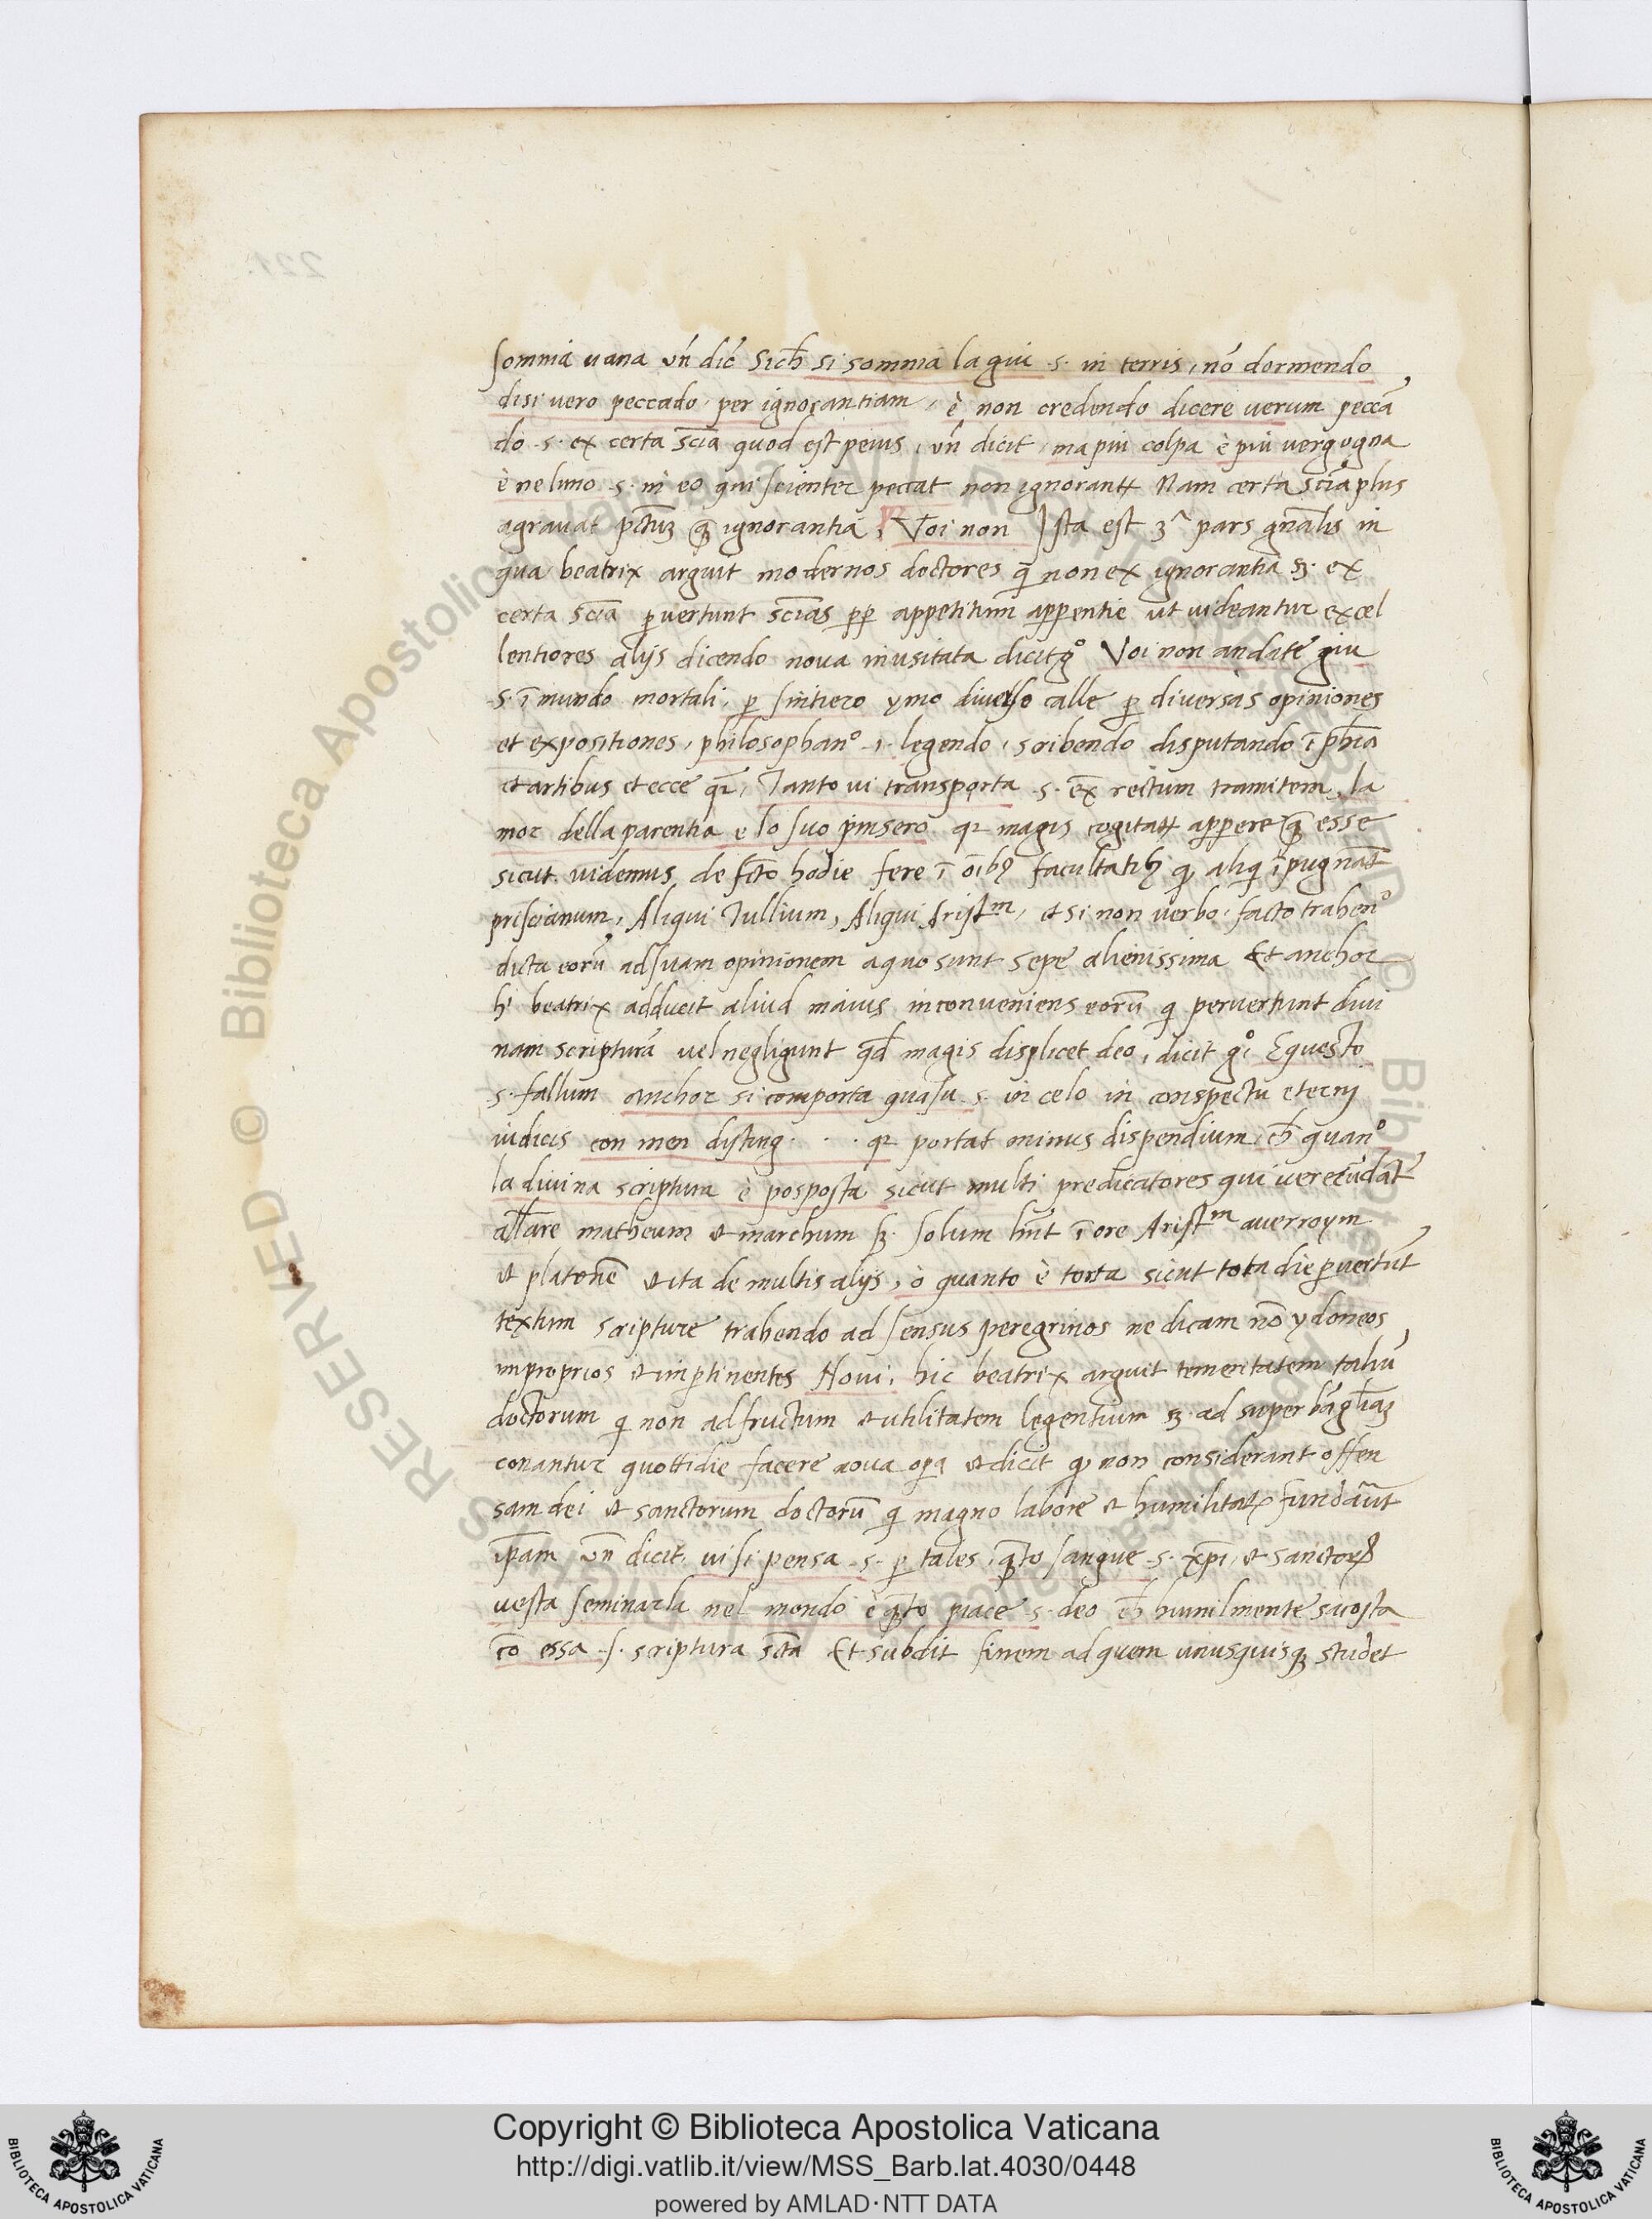 somnia uana uñ dic̃ Sich̃ si somnia la giu .s. in terris, nõ dormendo
disi uero peccado, per ignorantiam, è non credendo dicere uerum peccã
do .s. ex certa scĩa quod est peius, uñ dicit, ma piu colpa è più uergogna
è ne luno .s. in eo qui scienter peccat non ignorant̃ Nam certa scĩa plus
agrauat pctũ q̃ ignorantia, Voi non Ista est 3ª pars gñalis in
qua beatrix arguit modernos doctores q̃ non ex ignorantia sꝫ ex
certa scĩa ꝑuertunt scĩas ꝓꝑ appetitum apꝑentie ut uideantur excel
lentiores alijs dicendo noua inusitata dicit g° Voi non andate giu
.s. ĩ mundo mortali, ꝑ sintiero ymo diuerso calle ꝑ diuersas opiniones
et expositiones, philosophan° .i. legendo, scribendo disputando ĩ pħia
et artibus et ecce qr̃, Tanto ui transporta .s. ex̃ rectum tramitem, la
mor della parentia e lo suo pinsero qꝛ magis cogitat̃ apꝑere q̃ esse
sicut uidemus de fcto hodie fere ĩ oĩbꝫ facultatibꝫ ꝙ aliq̃ ĩpugnãt
priscianum, Aliqui Tullium, Aliqui Aristm, et si non uerbo, facto trahen°
dicta eorũ ad suam opinionem a quo sunt sepe alienissima Et anchor
hͥ beatrix adducit aliud maius inconueniens eorũ q̃ peruertunt diui
nam scripturã uel negligunt qd̃ magis displicet deo, dicit g°, E questo
.s. fallum anchor si comporta qua su .s. in celo in conspectu eterni
iudicis con men disting . . . qꝛ portat minus dispendium, ch̃ quan°
la diuina scriptura è posposta sicut multi predicatores qui uerecũdãt
allare matheum et marchum sꝫ solum hñt ĩ ore Aristm auerroym
et platonẽ et ita de multis alijs, ò quanto è torta sicut tota die ꝑuertũt
textum scripture trahendo ad sensus peregrinos ne dicam nõ ydoneos
improprios et imꝑtinentes Noui, hic beatrix arguit temeritatem taliũ
doctorum q̃ non ad fructum et utilitatem legentium sꝫ ad superbã gl̃iaꝫ
conantur quottidie facere noua oꝑa et dicit ꝙ non considerant offen
sam dei et sanctorum doctorũ q̃ magno labore et humilitate fundãut
ip̃am uñ dicit, ui si pensa .s. ꝑ tales, q̃to sangue .s. xp̃i, et sanctoꝝ
uesta seminarla nel mondo è q̃to piace .s. deo ch̃ humilmente sacosta
cõ essa .s. scriptura sctã Et subdit finem ad quem unusquisqꝫ studet
Copyright © Biblioteca Apostolica Vaticana
http://digi.vatlib.it/view/MSS_Barb.lat.4030/0448
powered by AMLAD·NTT DATA